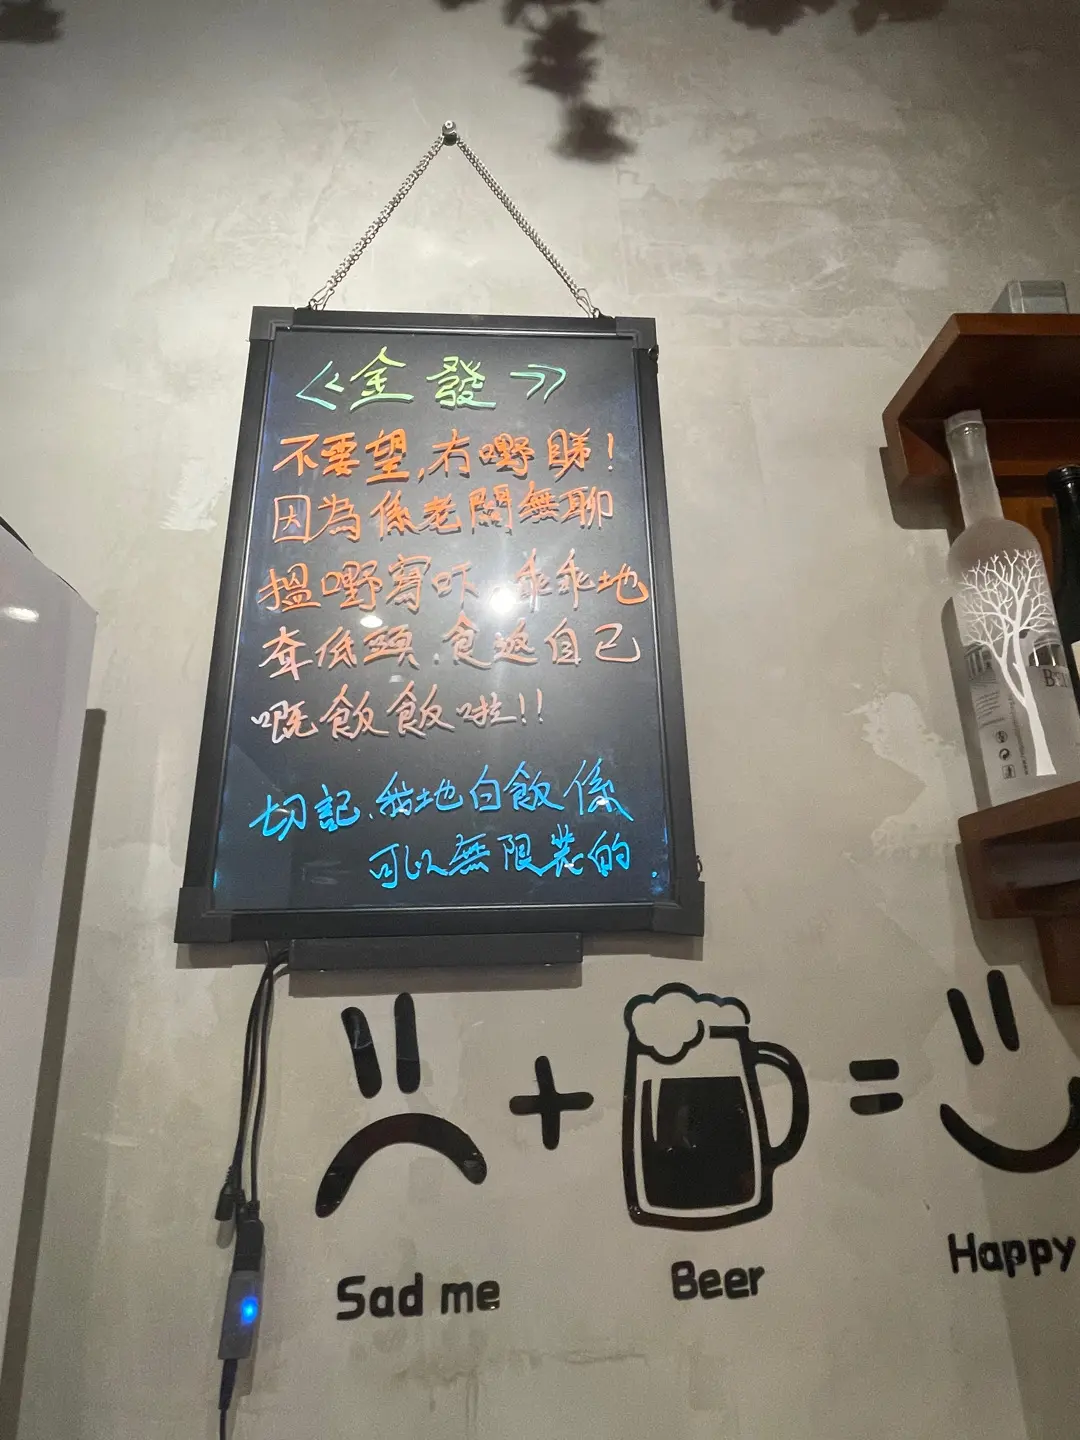 《金發》
不要望,冇嘢睇！
因為係老闆無聊
搵嘢寫吓,乖乖地
耷低頭,食返自己
嘅飯飯啦!!
切記,我地白飯係
可以無限裝的.
Sad me
+
Beer
=
Happy